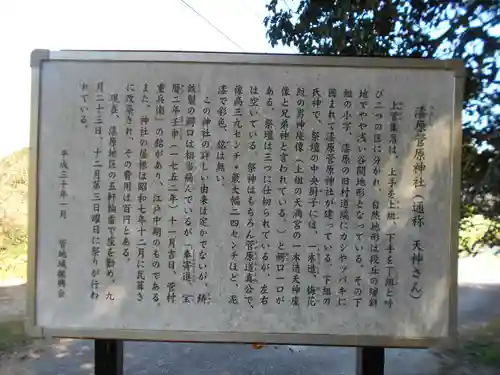 漆原菅原神社（通称　天神さん）
上管集落は、上手を上組、下手を下組と呼
び二つの組に分かれ、自然地形は段丘の傾斜
地でやや浅い谷間地形となっている。その下
組の小字、漆原の旧村道端にカシやツバキに
囲まれて漆原菅原神社が建っている。下組の
氏神で、祭壇の中央厨子には、一木造、梅花
紋の男神座像（上組の天満宮の一木造天神座
像と兄弟神と言われている。）と鰐口一口が
ある。祭壇は三つに仕切られているが、左右
は空いている。祭神はもちろん菅原道真公で、
像高三九センチ・最大幅二四センチほど、泥
漆で彩色、銘は無い。
この神社の詳しい由来は定かでないが、鋳
鉄製の鰐口は相当傷んでいるが「奉寄進、宝
暦二年壬申（一七五二年）十一月吉日、菅村
重兵衛」の銘があり、江戸中期のものである。
また、神社の屋根は昭和七年十二月に瓦葺き
に改築され、その費用は百円とある。
現在、漆原地区の五軒輪番で座を勤め、九
月二十三日、十二月第三日曜日に祭りが行わ
れている。
平成三十年一月　管地域振興会